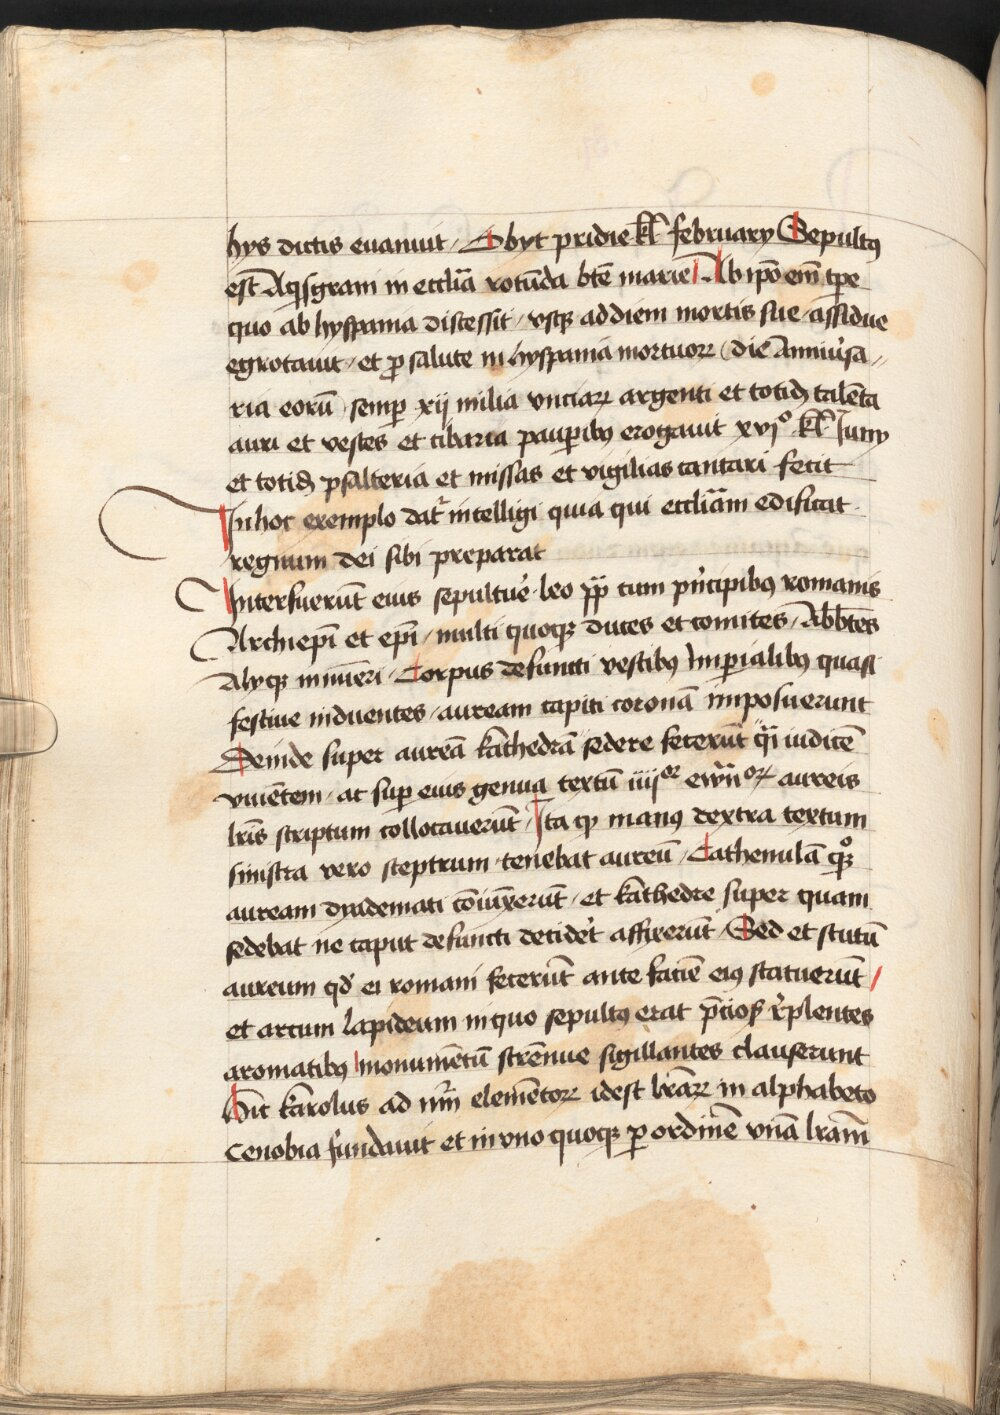 hys dictis euanuit / Obyt pridie kl̄ februarȳ Sepultꝰ
est Aq̄sgrani in eccliā rotūda btē marie Ab ip̄o em̄ tp̄e
quo ab hyspania discessit / vsqꝫ ad diem mortis sue / assidue
egrotauit / et ꝓ salute in hyspania mortuoꝝ / die Anniu̾sa //
ria eorū semꝑ xij milia vnciaꝝ argenti et totidē talēta
auri et vestes et cibaria pauꝑibꝰ erogauit xvjº kl̄ Iunȳ
et totidē psalteria et missas et vigilias cantari fecit
In hoc exemplo datᷣ intelligi quia qui eccliam̄ edificat
regnum dei sibi preparat
Interfuerūt eius sepultur̾e leo pp̄ cum pn̄cipibꝰ romanis
Archiepī et epī / multi quoqꝫ duces et comites / Abb̄tes
Alyqꝫ innu̅eri / Corpus defuncti vestibꝰ Imꝑialibꝰ quasi
festiue induentes / auream capiti coronā imposuerunt
Deinde super aureā kathedrā sedere fecerūt q̄i iudicē
viuētem / ac suꝑ eius genua textū iiijᵒʳ ew̄nᵒꝝ aureis
lrīs scriptum collocauerūt / Ita qꝫ manꝰ dextra textum
sinistra vero sceptrum tenebat aureū / Cathenulā qꝫº
auream dyademati cōiūxerūt / et kathedre super quam
sedebat ne caput defuncti decider̾t affixerūt / Sed et scutū
aureum qd̾ ei romani fecerūt ante faciē eiꝰ statuerūt /
et arcum lapideum in quo sepultꝰ erat p̄ciosꝭ r̾plentes
aromatibꝰ monumētū strēnue sigillantes clauserunt
Hic karolus ad nr̄m elemētoꝝ idest lr̄aꝝ in alphabeto
Cenobia fundauit et in vno quoqꝫ ꝑ ordinē vnā lr̄am